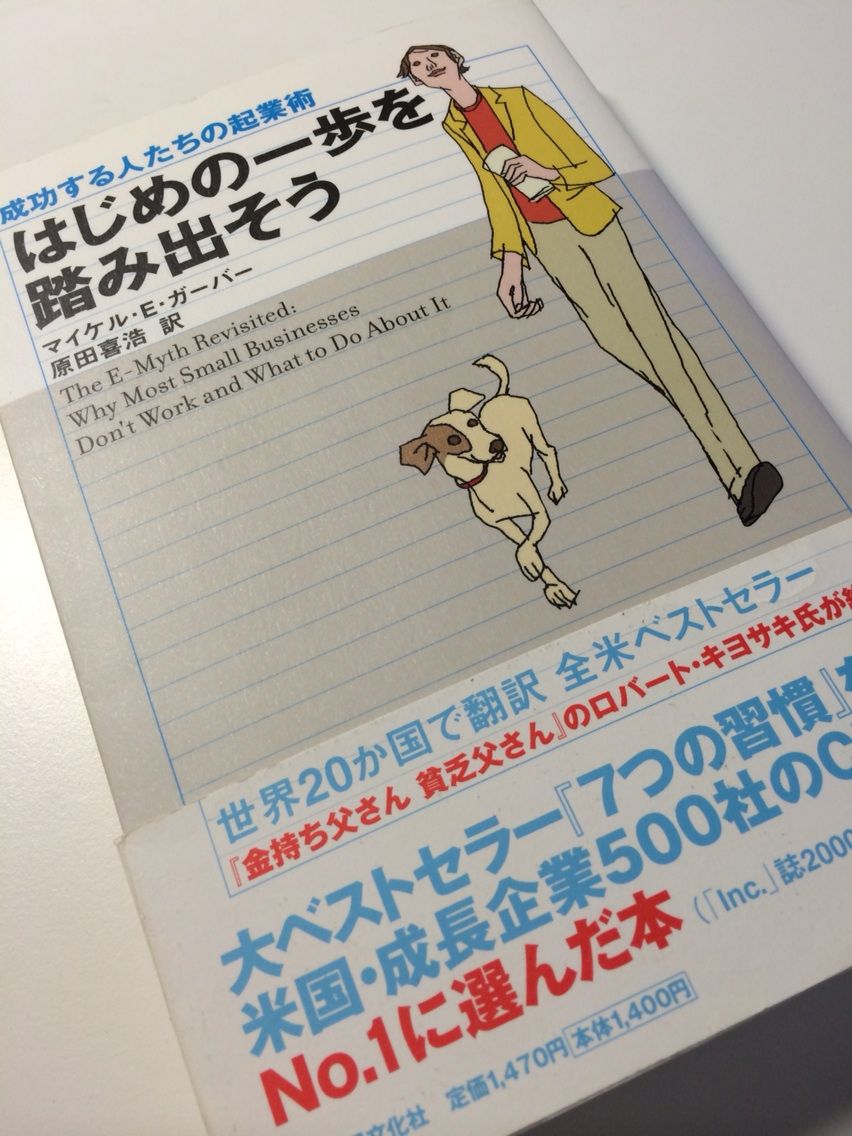 成功する人たちの起業術
はじめの一歩を
踏み出そう
マイケル・E・ガーバー
原田喜浩 訳
The E-Myth Revisited:
Why Most Small Businesses
Don't Work and What to Do About It
世界20か国で翻訳 全米ベストセラー
『金持ち父さん 貧乏父さん』のロバート・キヨサキ氏が
大ベストセラー『7つの習慣』
米国・成長企業500社のC
No.1に選んだ本 (「Inc.」誌2000
文化社 定価1,470円 本体1,400円